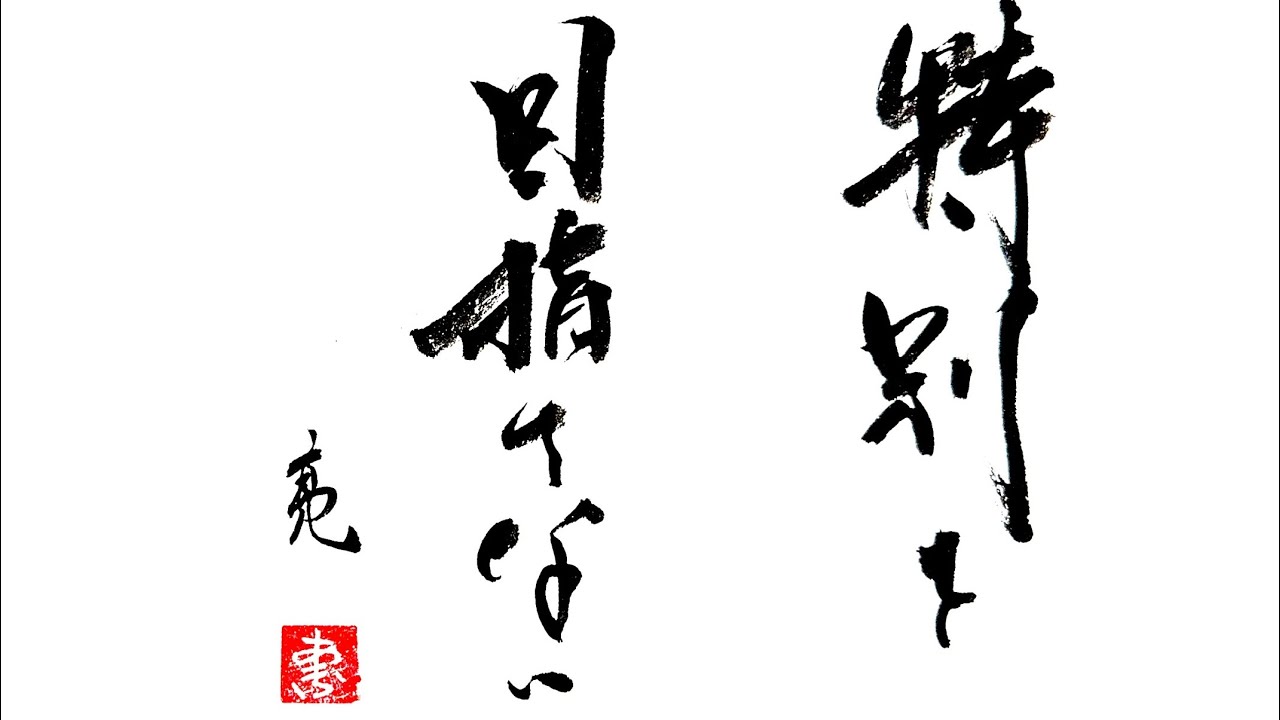 特別を
目指さない
亮
書